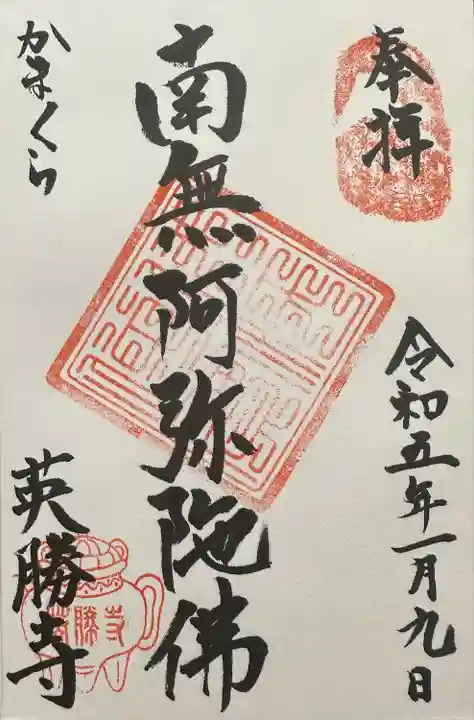 奉拝
令和五年一月九日
南無阿弥陀佛
かまくら
英勝寺
英勝寺